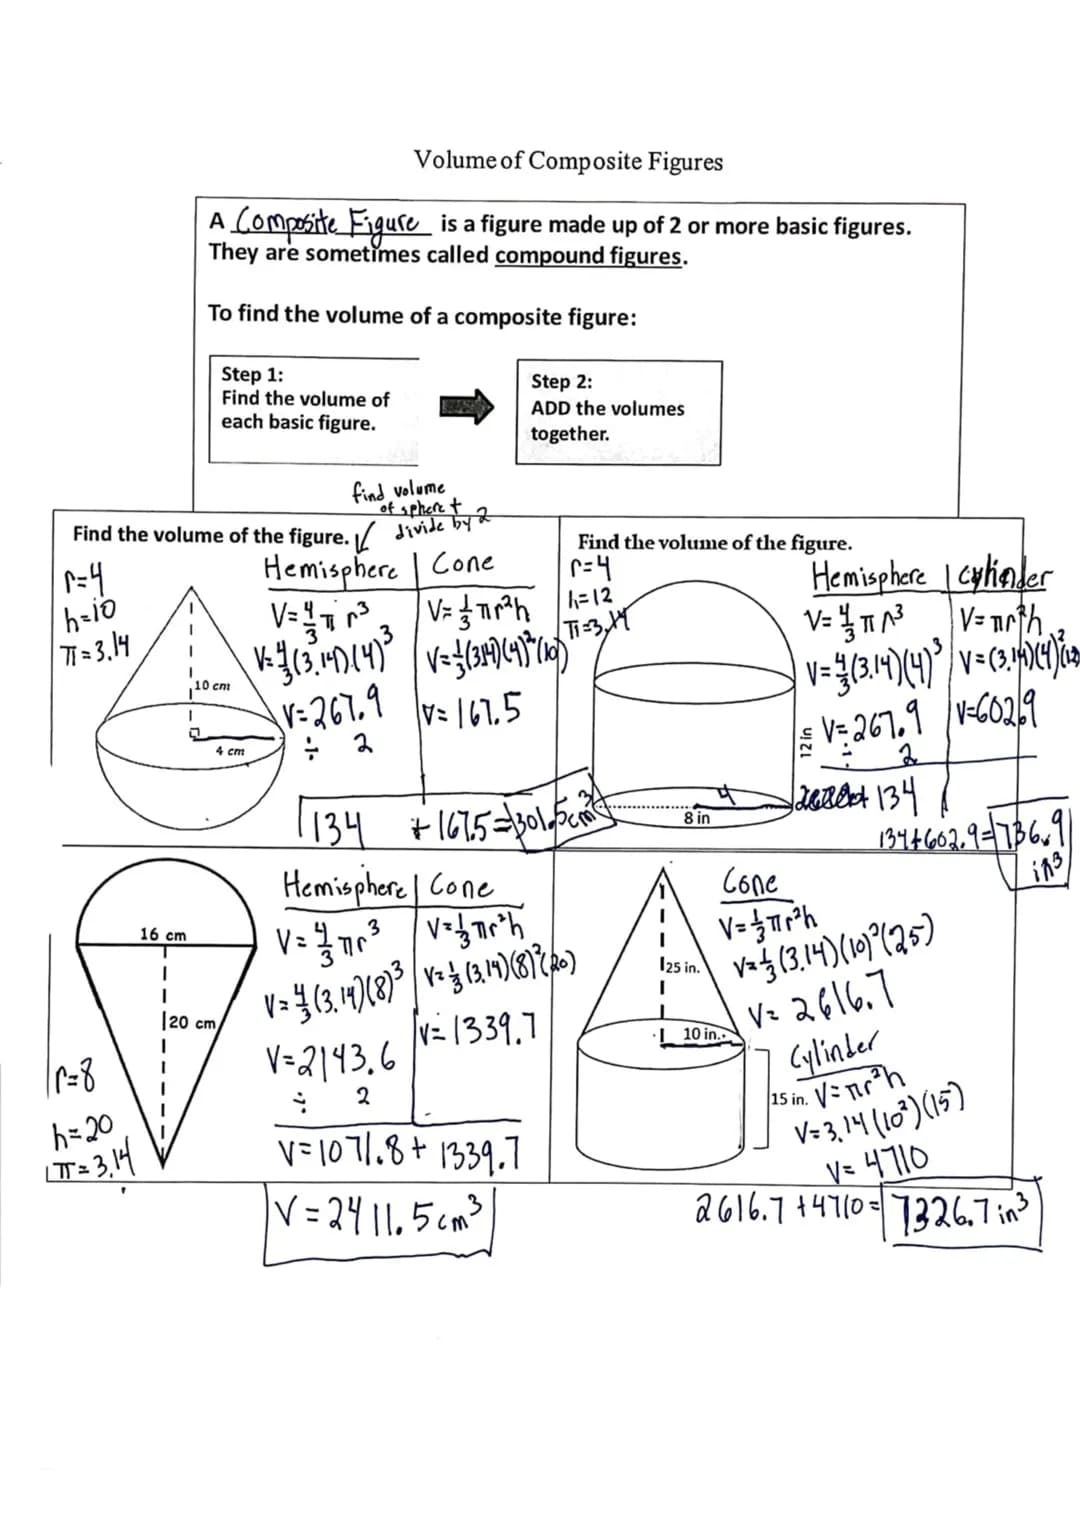 Volume of Composite Figures
A Composite Figure is a figure made up of 2 or more basic figures.
They are sometimes called compound figures.
To find the volume of a composite figure:
Step 1:
Find the volume of
each basic figure.
Step 2:
ADD the volumes
together.
find volume
of sphere +
divide by 2
Find the volume of the figure.
Hemisphere | Cone
r=4
h=10
π=3.14
V=4/3 π r³
V=1/3 πr²h
V=4/3(3.14)(4)³
V=1/3(3.14)(4)²(10)
V=267.9
V=167.5
÷ 2
10 cm
4 cm
134 + 167.5=301.5cm³
Find the volume of the figure.
r=4
h=12
π=3.14
Hemisphere | Cylinder
V=4/3 π r³
V=πr²h
V=4/3(3.14)(4)³
V=(3.14)(4)²(12)
V=267.9
V=602.9
÷ 2
12 in
4
8 in
134
134+602.9=736.9
in³
Hemisphere | Cone
16 cm
20 cm
V=4/3 πr³
V=1/3 πr²h
V=4/3(3.14)(8)³
V=1/3(3.14)(8)²(20)
V=2143.6
V=1339.7
÷ 2
r=8
h=20
π=3.14
V=1071.8+ 1339.7
V=2411.5cm³
Cone
V=1/3πr²h
V=1/3(3.14)(10)²(25)
V=2616.7
25 in.
10 in.
Cylinder
15 in.
V=πr²h
V=3.14(10²)(15)
V=4710
2616.7+4710=7326.7in³